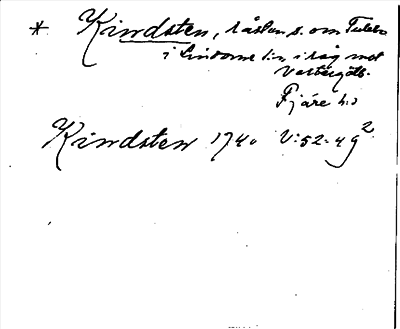 * Kindsten, råsten, s. om Tulebo
i Lindome sn, i råg mot
Västergötl.
Fjäre hd
Kindsten 1740 V:52-49²